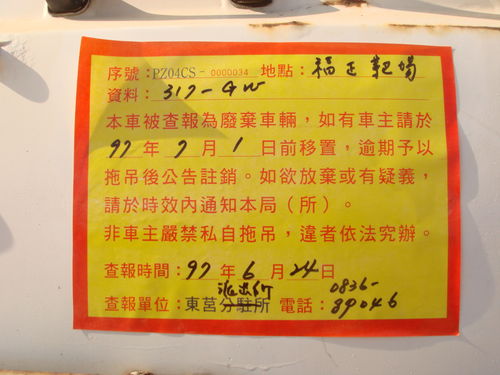 序號：PZ04CS－0000034 地點：福正靶場
資料：317-GW
本車被查報為廢棄車輛，如有車主請於
97年7月1日前移置，逾期予以
拖吊後公告註銷。如欲放棄或有疑義，
請於時效內通知本局（所）。
非車主嚴禁私自拖吊，違者依法究辦。
查報時間：97年6月24日
派出所 0836-
查報單位：東莒分駐所 電話：89046